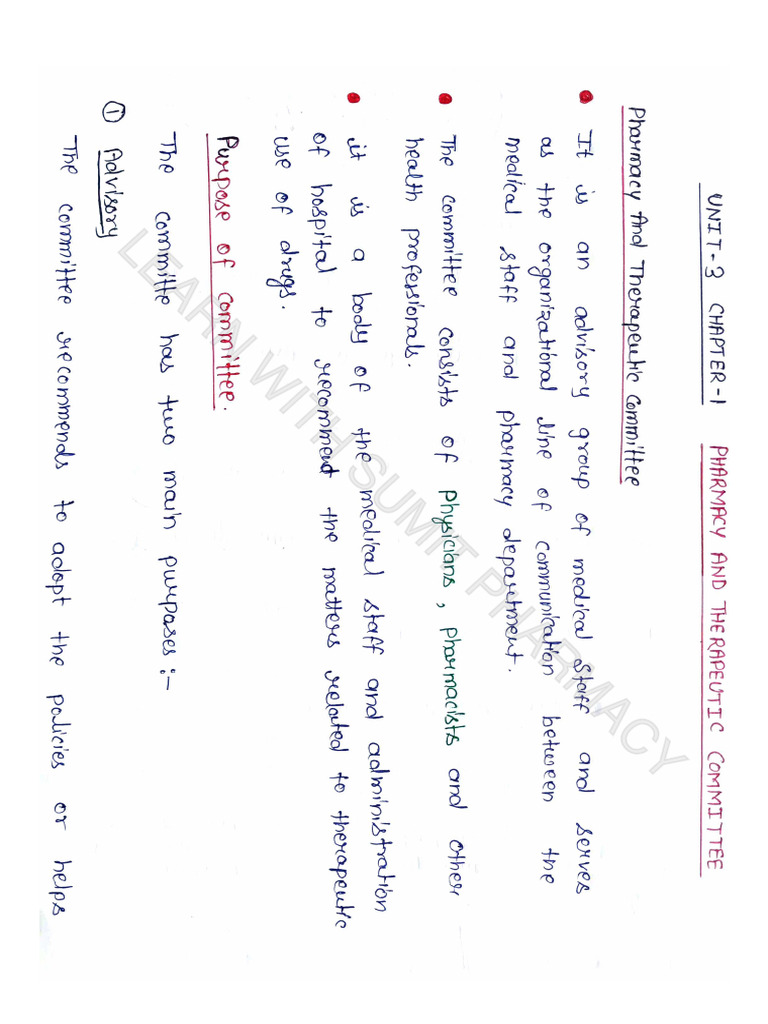 UNIT-3 CHAPTER-1 PHARMACY AND THERAPEUTIC COMMITTEE
Pharmacy And Therapeutic Committee
• It is an advisory group of medical staff and serves
as the organizational line of communication between the
medical staff and pharmacy department.
• The committee consists of physicians, pharmacists and other
health professionals.
• it is a body of the medical staff and administration
of hospital to recommend the matters related to therapeutic
use of drugs.
Purpose of committee.
The committe has two main purposes :-
① Advisory
The committee recommends to adopt the policies or helps
LEARN WITH SUMIT PHARMACY